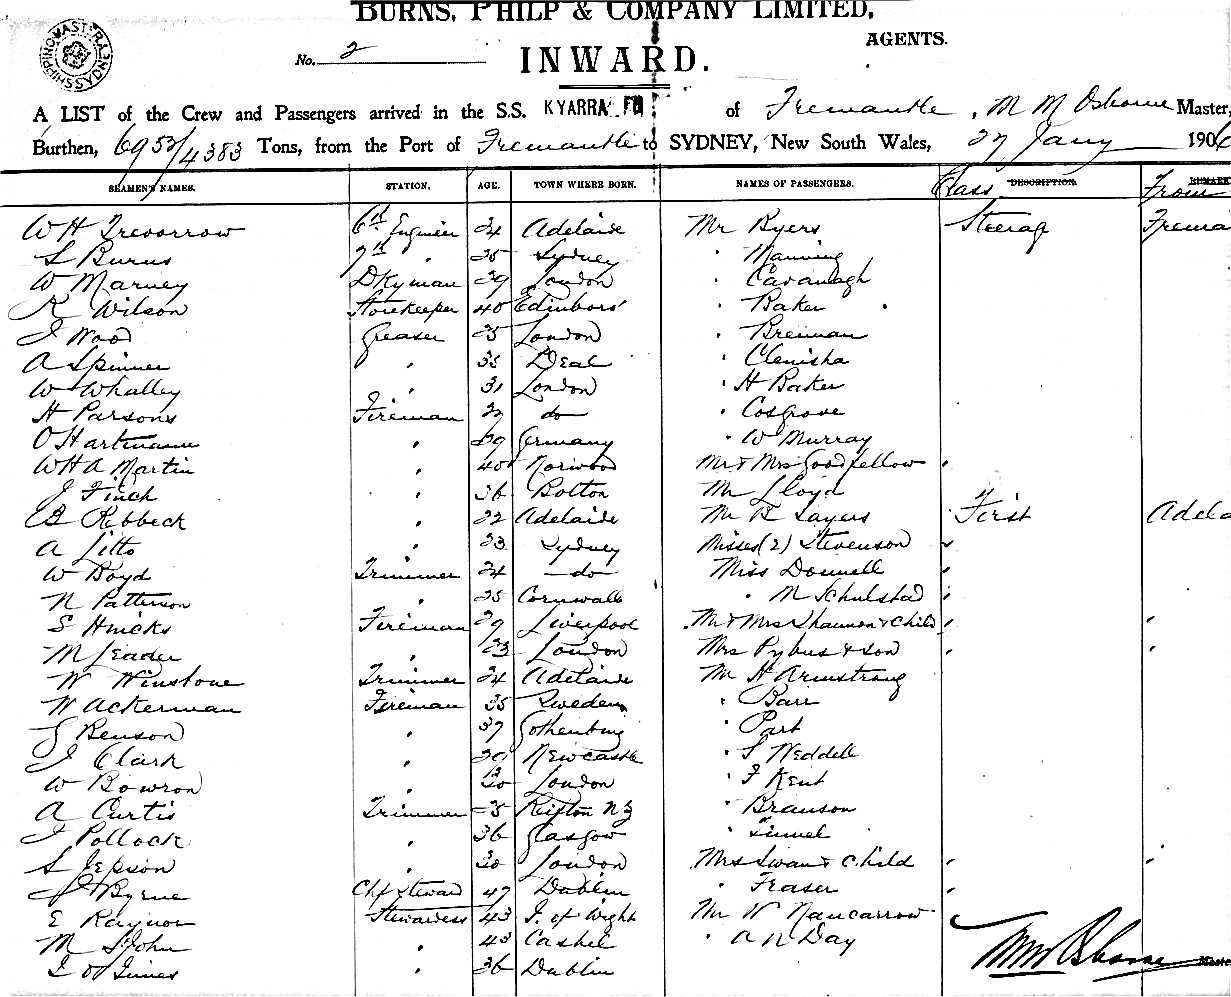 BURNS, PHILP & COMPANY LIMITED,
AGENTS.
No. 2
INWARD.
A LIST of the Crew and Passengers arrived in the S.S. KYARRA of Fremantle, M M Osborne Master,
Burthen, 6953/4383 Tons, from the Port of Fremantle to SYDNEY, New South Wales, 27 Jany 1906
SEAMEN'S NAMES. STATION. AGE. TOWN WHERE BORN. NAMES OF PASSENGERS. Class DESCRIPTION. From REMARK
W H Trevorrow 6th Engineer 24 Adelaide Mr Byers Steerage Frema
S Burns 7th " 25 Sydney " Manning
W Marney Dkyman 39 London " Cavanagh
R Wilson Storekeeper 40 Edinboro' " Baker
J Wood Greaser 25 London " Brennan
A Spinner " 35 Deal " Clenisha
W Whalley " 31 London " H Baker
H Parsons Fireman do " Cosgrove
O Hartmann " 29 Germany " W Murray
W H A Martin " 40 Norwood Mr & Mrs Goodfellow "
J Finch " 36 Bolton Mr Lloyd
B Rebbeck " 22 Adelaide Mr R Sayers First Adela
A Litto " 23 Sydney Misses (2) Stevenson "
W Boyd Trimmer 24 do Miss Donnell "
N Patterson " 25 Cornwall " M Schulstad "
S Hnicks Fireman 29 Liverpool Mr & Mrs Shannon & Child " "
M Leader " 23 London Mrs Pybus & son " "
W Winstone Trimmer 24 Adelaide Mr H Armstrong
W Ackerman Fireman 35 Sweden " Barr
J Benson " 37 Gothenburg " Part
J Clark " 29 Newcastle " S Weddell
W Bowron " London " F Kent
A Curtis Trimmer 25 Reifton NZ " Branson
J Pollock " 36 Glasgow "
S Jepson " 20 London Mrs Swan & Child " "
J Byrne Chf Steward 47 Dublin " Fraser "
E Raynor Stewardess 43 I. of Wight Mr W Nancarrow
M St John " 43 Cashel " A N Day
" 36 Dublin
M M Osborne Master